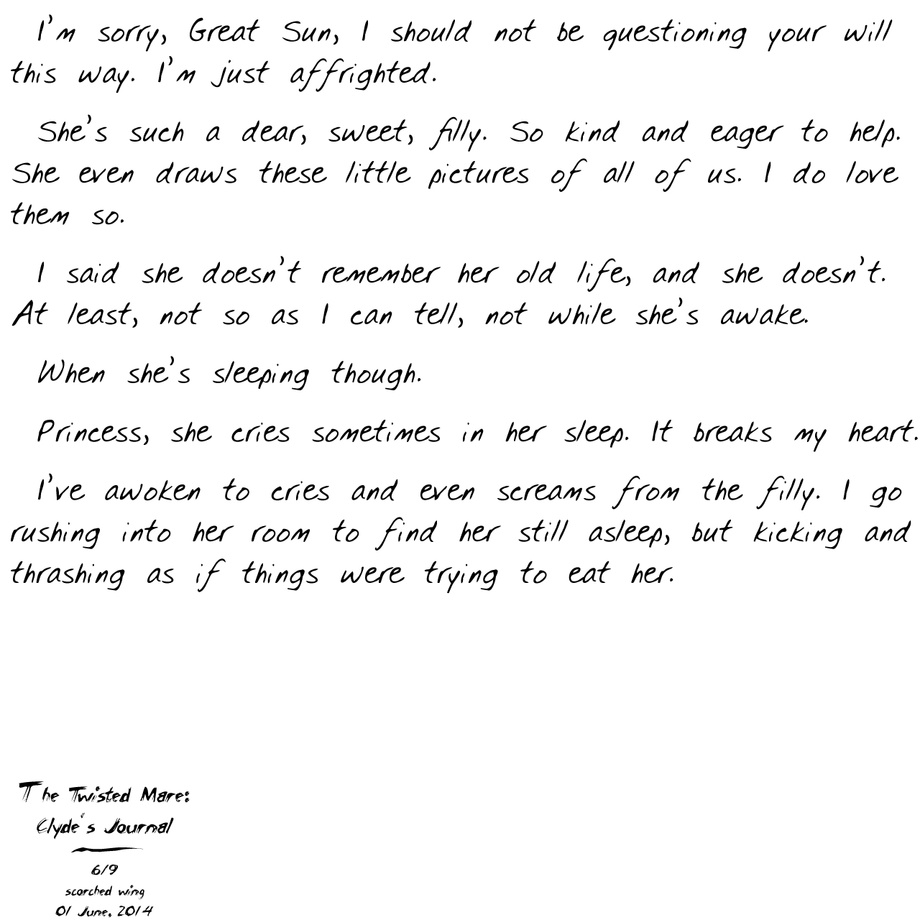 I'm sorry, Great Sun, I should not be questioning your will
this way. I'm just affrighted.
She's such a dear, sweet, filly. So kind and eager to help.
She even draws these little pictures of all of us. I do love
them so.
I said she doesn't remember her old life, and she doesn't.
At least, not so as I can tell, not while she's awake.
When she's sleeping though.
Princess, she cries sometimes in her sleep. It breaks my heart.
I've awoken to cries and even screams from the filly. I go
rushing into her room to find her still asleep, but kicking and
thrashing as if things were trying to eat her.
The Twisted Mare:
Clyde's Journal
6/9
scorched wing
01 June, 2014